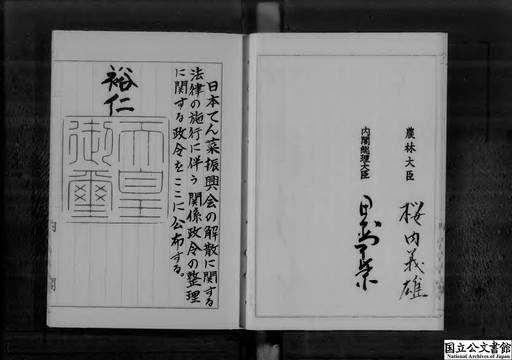 農林大臣
桜内義雄
内閣総理大臣
日本てん菜振興会の解散に関する
法律の施行に伴う関係政令の整理
に関する政令をここに公布する。
裕仁
天皇
御璽
国立公文書館
National Archives of Japan